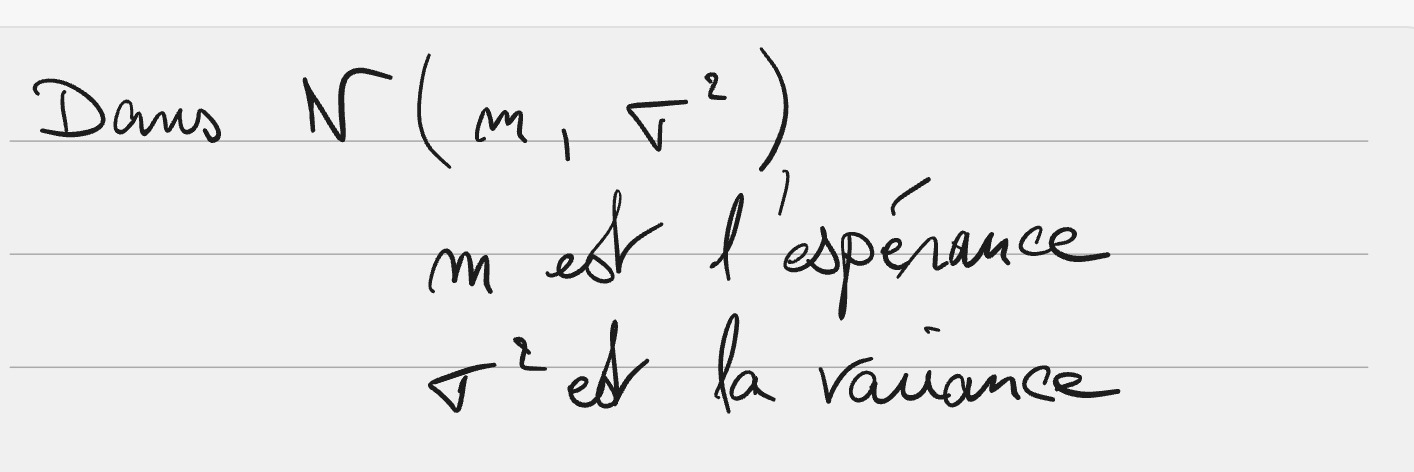 Dans N(m, σ²)
m est l'espérance
σ² est la variance